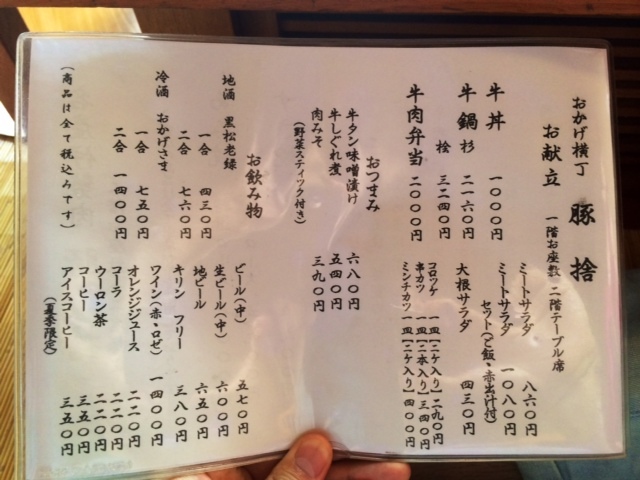 おかげ横丁 豚捨
お献立 一階お座敷 二階テーブル席
牛丼 一〇〇〇円
牛鍋 杉 二一六〇円
桧 三二四〇円
牛肉弁当 二〇〇〇円
ミートサラダ 八六〇円
ミートサラダ
セット(ご飯・赤出汁付) 一〇八〇円
大根サラダ 四三〇円
コロッケ 一皿【二ケ入り】 二九〇円
串カツ 一皿【二本入り】 三四〇円
ミンチカツ 一皿【二ケ入り】 四〇〇円
おつまみ
牛タン味噌漬け 六八〇円
牛しぐれ煮 五四〇円
肉みそ 三九〇円
(野菜スティック付き)
お飲み物
地酒 黒松老緑
一合 四三〇円
二合 七六〇円
冷酒 おかげさま
一合 七五〇円
二合 一四〇〇円
(商品は全て税込みです)
ビール(中) 五七〇円
生ビール(中) 六〇〇円
地ビール 六五〇円
キリン フリー 三八〇円
ワイン(赤・ロゼ) 一四〇〇円
オレンジジュース 二二〇円
コーラ 二二〇円
ウーロン茶 二二〇円
コーヒー 三五〇円
アイスコーヒー 三五〇円
(夏季限定)